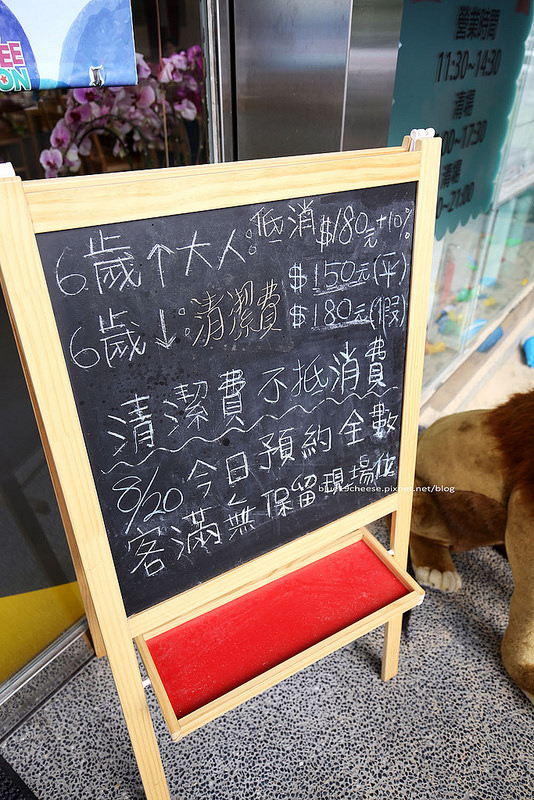 EE
ON
營業時間
11:30~14:30
清場
00~17:30
清場
~21:00
6歲↑大人:低消$180元+10%
6歲↓:清潔費$150元(平)
$180元(假)
清潔費不抵消費
8/20今日預約全數
客滿無保留現場位